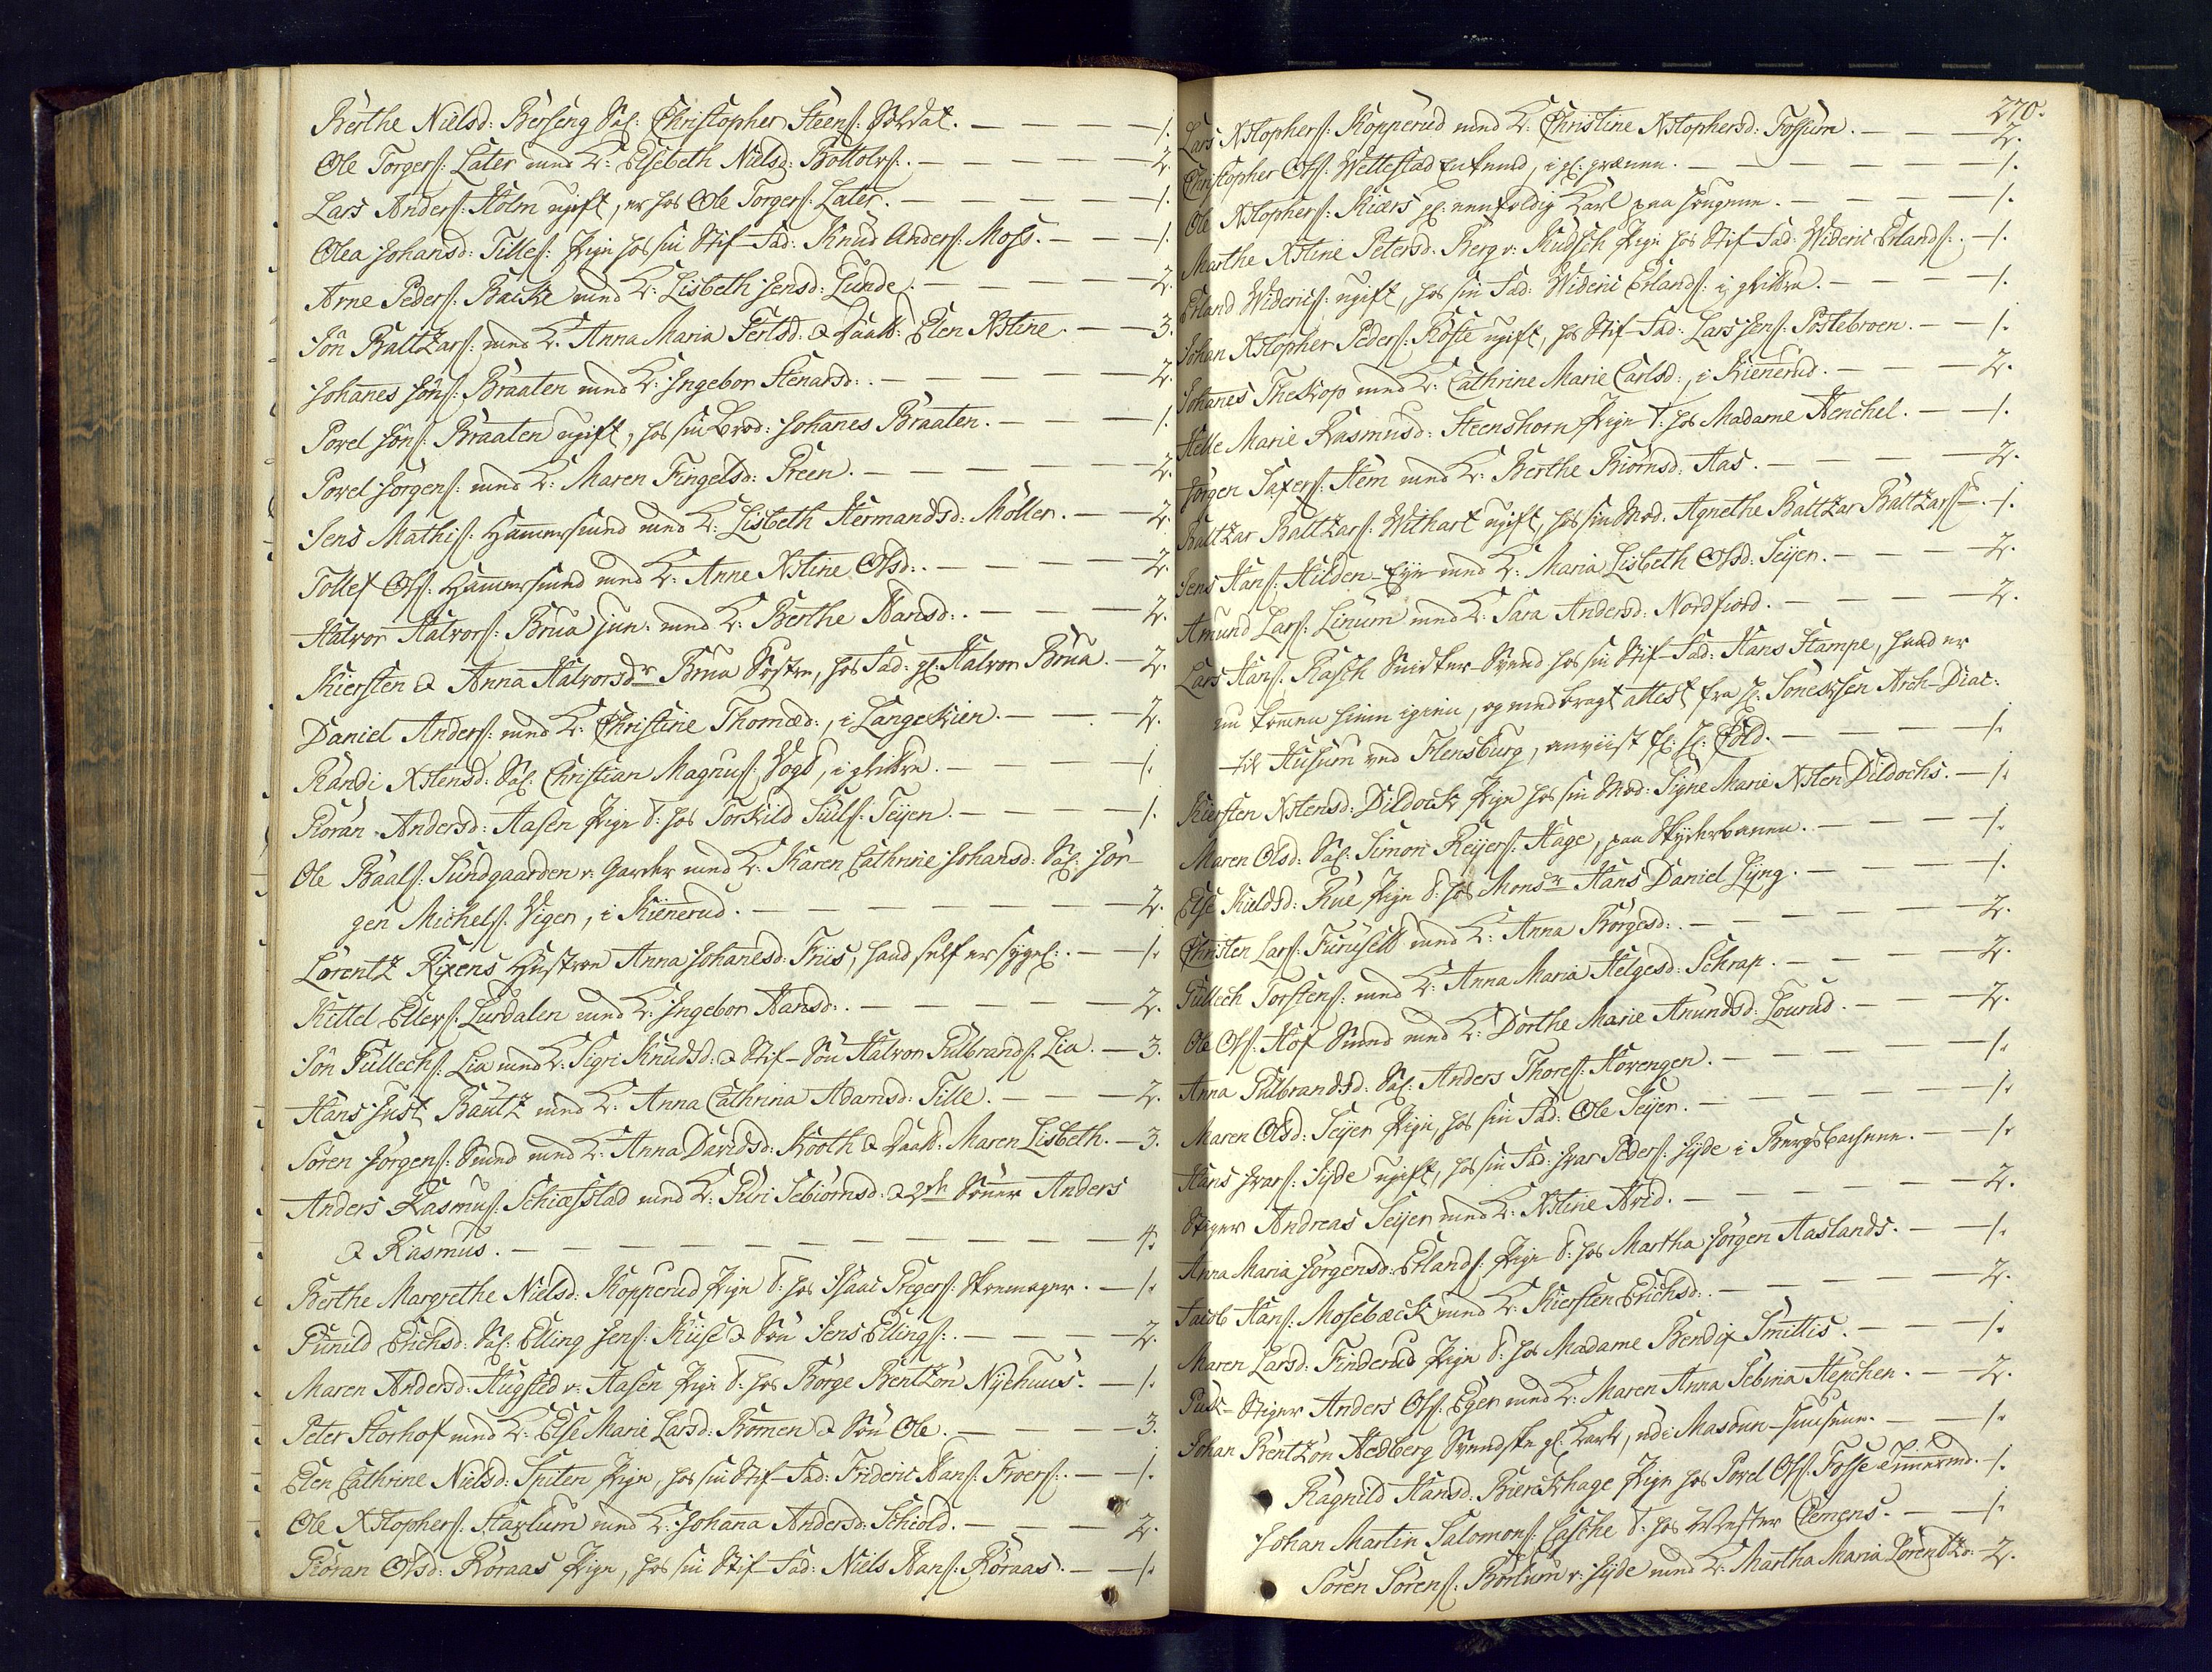 Berthe Nielsd: Berseng Sal: Christopher Steens: Soldat. — 1.
Ole Torgers: Later med K: Elsebeth Nielsd: Bottolvs: — 2.
Lars Anders: Holm ugift, er hos Ole Torgers: Later. — 1.
Olea Johansd: Tilles: Pige hos sin Stif-Fad: Knud Anders: Moss. — 1.
Arne Peders: Backe med K: Lisbeth Jensd: Lunde. — 2.
Jön Baltzars: med K: Anna Maria Ferlsd: & Daatt: Elen Xstine. — 3.
Johanes Jöns: Braaten med K: Ingebor Stenarsd: — 2.
Povel Jöns: Braaten ugift, hos sin Brod: Johanes Braaten. — 1.
Povel Jörgens: med K: Maren Fingelsd: Preen. — 2.
Jens Mathis: Hammersmed med K: Lisbeth Hermandsd: Möller. — 2.
Tollef Ols: Hammersmed med K: Anne Xstine Olsd: — 2.
Halvor Halvors: Brua jun. med K: Berthe Hansd: — 2.
Kiersten & Anna Halvorsdr Brua Söstre, hos Fad: gl: Halvor Brua. — 2.
Daniel Anders: med K: Christine Thomæd:, i Langekien. — 2.
Randi Xstensd: Sal: Christian Magnus: Vogt, i gl: Kirke. — 1.
Göran Andersd: Aasen Pige T: hos Torkild Juels: Teijen. — 1.
Ole Paals: Sundgaarden v. Garver med K: Karen Cathrine Johansd: Sal: Jör-
gen Michels: Vigen, i Kiennerud. — 2.
Lorentz Rixens Hustroe Anna Johanesd: Friis, hand self er sygel: — 1.
Kittel Ellevs: Lurdalen med K: Ingebor Hansd: — 2.
Jön Gullechs: Lia med K: Sigri Knudsd: & Stif-Sön Halvor Gulbrands: Lia. — 3.
Hans Just Bautz med K: Anna Cathrina Adamsd: Tille. — 2.
Sören Jörgens: Smed med K: Anna Davidsd: Kooth & Daatt: Maren Lisbeth. — 3.
Anders Rasmus: Schiæfstad med K: Guri Sebiörnsd: & 2de Sönner Anders
& Rasmus. — 4.
Berthe Margrethe Nielsd: Kopperud Pige T: hos Isaac Gregers: Skomager. — 1.
Gunild Erichsd: Sal: Elling Jens: Kiise & Sön Jens Ellings: — 2.
Maren Andersd: Hugsted v. Aasen Pige T: hos Börge Bentzön Nyehuus. — 1.
Peter Storhof med K: Else Marie Larsd: Bommen & Sön Ole. — 3.
Elen Cathrine Nielsd: Spiten Pige, hos sin Stif-Fad: Frideric Hans: Troers: — 1.
Ole Xstophers: Starlum med K: Johana Andersd: Schiold. — 2.
Göran Olsd: Röraas Pige, hos sin Stif-Fad: Niels Hans: Röraas. — 1.
270.
Lars Xstophers: Kopperud med K: Christine Xstophersd: Fossum. — 2.
Christopher Ols: Wettestad Enkemd, i gl: — 1.
Ole Xstophers: Kiærs gl: eenfoldig Karl paa Haugene. — 1.
Marthe Xstine Petersd: Berg v. Kudsch Pige hos Stif-Fad: Wideric Erlands: — 1.
Erland Widerics: ugift, hos sin Fad: Wideric Erlands: i gl: Kirke. — 1.
Johan Xstopher Peders: Röste ugift, hos Stif-Fad: Lars Jens: Postebroen. — 1.
Johanes Theskop med K: Cathrine Marie Carlsd:, i Kienerud. — 2.
Helle Marie Rasmusd: Steenshorn Pige T: hos Madame Henchel. — 1.
Jörgen Saxers: Hem med K: Berthe Biörnsd: Aas. — 2.
Baltzar Baltzars: Withart ugift, hos sin Mod: Agnethe Baltzar Baltzars: — 1.
Jens Hans: Hilden-Eije med K: Maria Lisbeth Olsd: Seijer. — 2.
Amund Lars: Linum med K: Sara Andersd: Nordfiord. — 2.
Lars Hans: Rasch Snidker-Svend hos sin Stif-Fad: Hans Stampe, hand er
nu kommen hiem igien, og medbragt attest fra H: Sönecksen Arch-Diac:
til Husum ved Flensburg, anviist H: Föld. — 1.
Kiersten Xstensd: Dildock Pige hos sin Mod: Signe Marie Xsten Dildochs. — 1.
Maren Olsd: Sal: Simon Reijers: Hage, paa Skydebanen. — 1.
Else Kieldsd: Rue Pige T: hos Monsr Hans Daniel Lijng. — 1.
Christen Lars: Furusett med K: Anna Börgesd: — 2.
Gullech Torstens: med K: Anna Maria Helgesd: Schrap. — 2.
Ole Ols: Hof Smed med K: Dorthe Marie Amundsd: Lourud. — 2.
Anna Gulbrandsd: Sal: Anders Thores: Hovengen. — 1.
Maren Olsd: Seijer Pige, hos sin Fad: Ole Seijer. — 1.
Hans Ivars: Sijde ugift, hos sin Fad: Ivar Peders: Sijde i Bergsbachene. — 1.
Stiger Andreas Seijer med K: Xstine Avid. — 2.
Anna Maria Jörgensd: Erlands: Pige T: hos Martha Jörgen Aaslands. — 1.
Jacob Hans: Mosebæck med K: Kiersten Erichsd: — 2.
Maren Larsd: Finderud Pige T: hos Madame Bendix Smittis. — 1.
Puk-Stiger Anders Ols: Eger med K: Maren Anna Sebina Hepchen. — 2.
Johan Bentzön Hedberg Svendske gl: Karl, ved Masovn-Huusene. — 1.
Ragnild Hansd: Bierckhage Pige hos Povel Ols: Fosse Timmermd. — 1.
Johan Martin Salomons: Casche T: hos Wæster Clemens. — 1.
Sören Sörens: Borlum v. Sijde med K: Martha Maria Lorentzd: — 2.